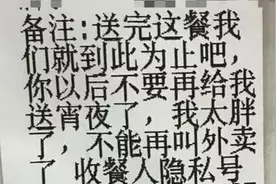 备注:送完这餐我
们就到此为止吧,
你以后不要再给我
送宵夜了,我太胖
了,不能再叫外卖
了
收餐人隐私号